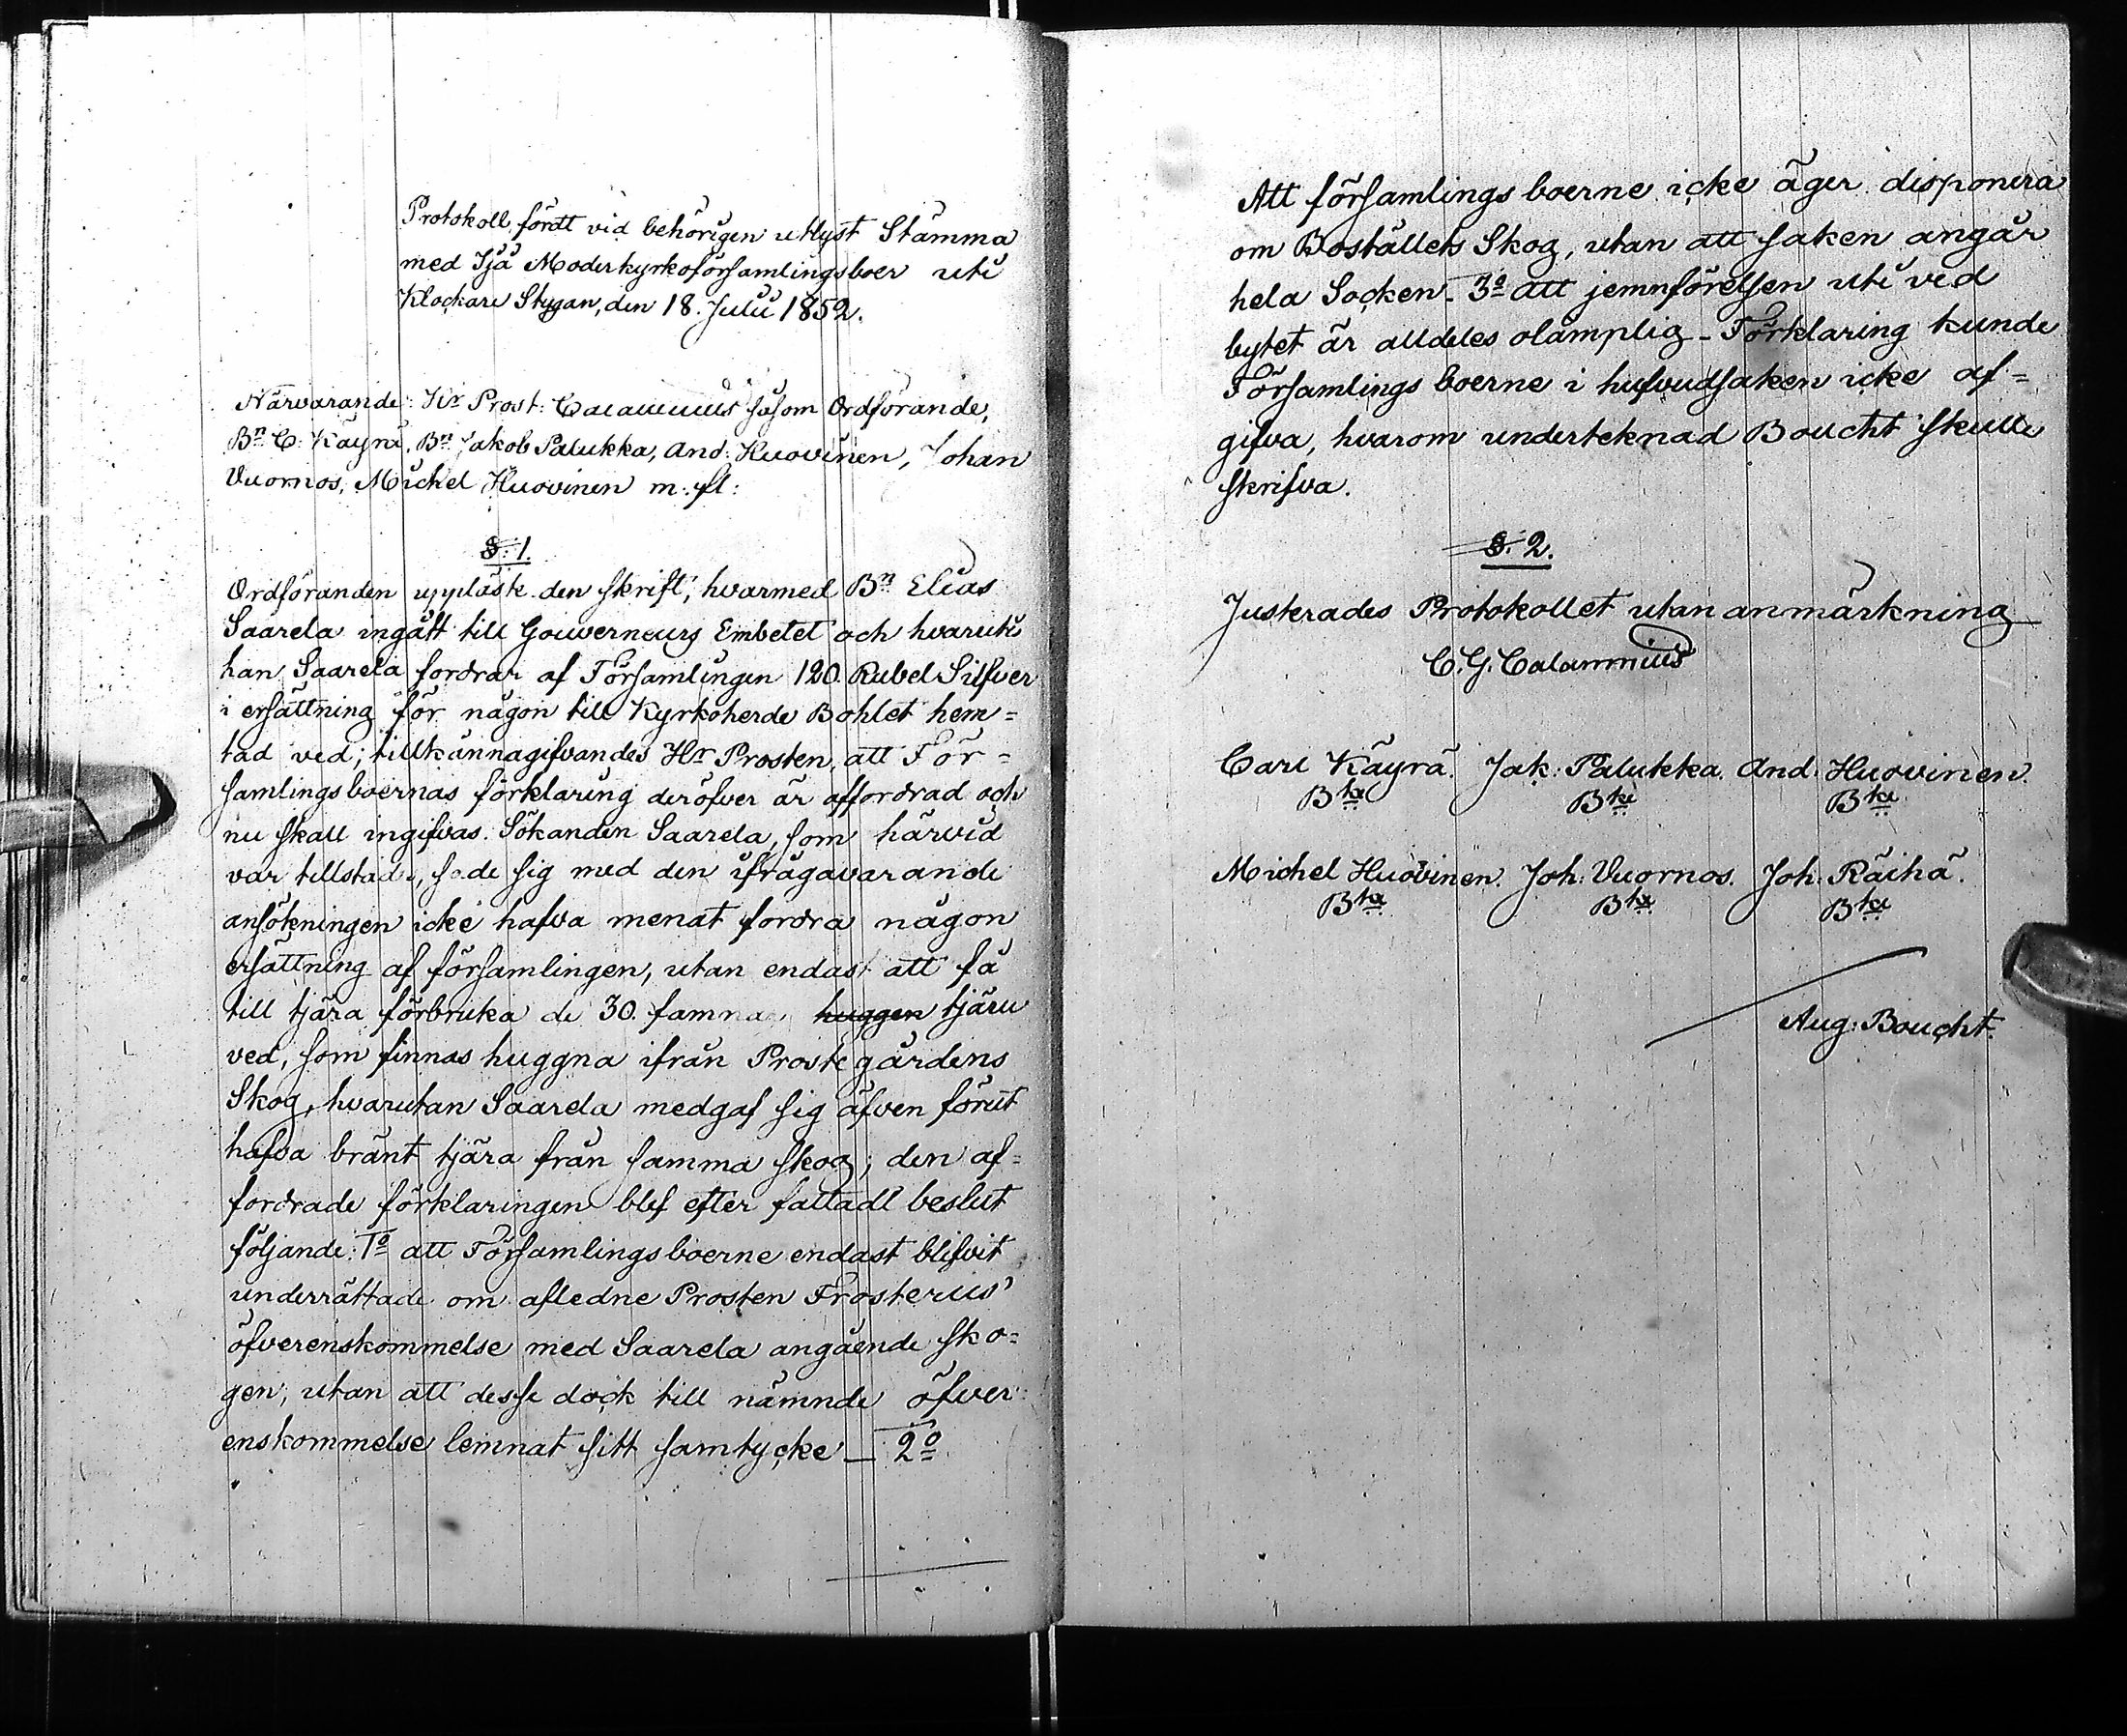 Protokoll, fördt vid behörigen utlyst Stämma
med Ijå Moderkyrkoförsamlingsboer uti
Klockare Stugan, den 18. Julii 1852.
Närvarande: Hr Prost: Calamnius såsom Ordförande,
Bn C: Käyrä, Bn Jakob Palukka, And: Huovinen, Johan
Vuornos, Michel Huovinen m: fl:
§: 1.
Ordföranden uppläste den skrift, hvarmed Bn Elias
Saarela ingått till Gouverneurs Embetet och hvaruti
han Saarela fordrar af Församlingen 120. Rubel Silfver
i ersättning för någon till Kyrkoherde Bohlet hem=
tad ved; tillkännagifvandes Hr Prosten, att För=
samlingsboernas förklaring deröfver är affordrad och
nu skall ingifvas. Sökanden Saarela, som härvid
var tillstädes, sade sig med den ifrågavarande
ansökningen icke hafva menat fordra någon
ersättning af församlingen, utan endast att få
till tjära förbruka de 30. famnar huggen tjäru
ved, som finnas huggna ifrån Prostegårdens
Skog, hvarutan Saarela medgaf sig äfven förut
hafva bränt tjära från samma skog; den af=
fordrade förklaringen blef efter fattadt beslut
följande: 1o att Församlingsboerne endast blifvit
underrättade om aflednе Prosten Frosterus'
öfverenskommelse med Saarela angående sko=
gen, utan att desse dock till nämnde öfver
enskommelse lemnat sitt samtycke — 2o
Att församlingsboerne icke äger disponera
om Boställets Skog, utan att saken angår
hela Socken - 3o att jemnförelsen uti ved
bytet är alldeles olämplig - Förklaring kunde
Församlingsboerne i hufvudsaken icke af=
gifva, hvarom undertecknad Boucht skulle
skrifva.
§. 2.
Justerades Protokollet utan anmärkning
C. G. Calamnius
Carl Käyrä. Jak: Palukka. And: Huovinen.
Bke Bke Bke
Michel Huovinen. Joh: Vuornos. Joh: Räihä.
Bke Bke Bke
Aug: Boucht.